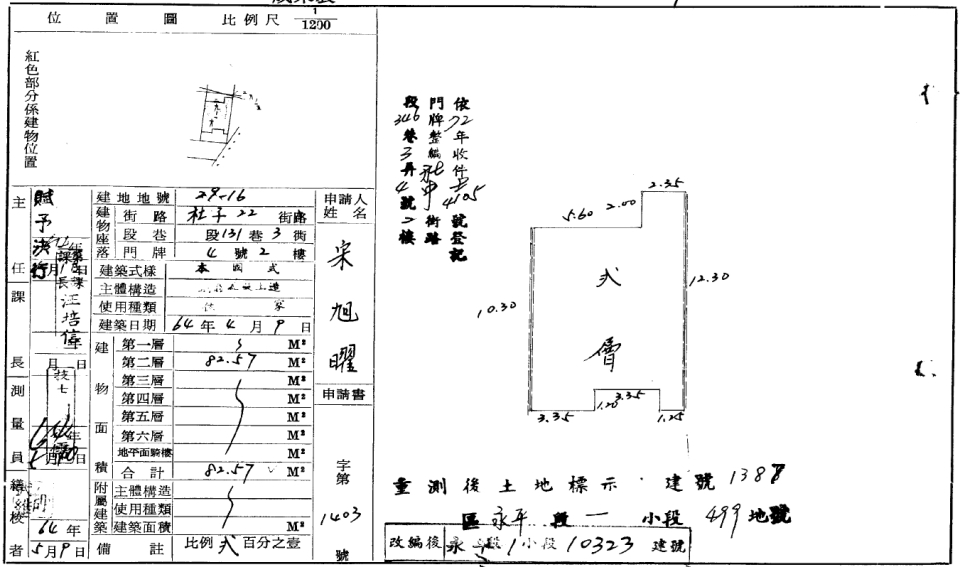 位置圖 比例尺 1/1200
紅色部分係建物位置
主任課長
賦予決行
課長汪培偉
月日
測量員
技士
年
月 日
繕校者
64年
5月9日
建地地號 29-16
建物座落
街路 社子22 街路
段巷 段131巷3衖
門牌 4號2樓
建築式樣 本國式
主體構造 造
使用種類 住家
建築日期 64年4月9日
建物面積
第一層 M²
第二層 82.57 M²
第三層 M²
第四層 M²
第五層 M²
第六層 M²
地平面騎樓 M²
合計 82.57 M²
附屬建築
主體構造
使用種類
建築面積 M²
備註 比例 弍百分之壹
申請人姓名
宋旭曜
申請書
字第
1403
號
依72年收件 4105 號登記
門牌整編 街路
段346巷3弄4號2樓
2.35
2.00
5.60
弍層
12.30
10.30
3.35
1.20
3.35
1.25
重測後土地標示 建號1387
區永平段一小段499地號
改編後 永 段1小段10323建號